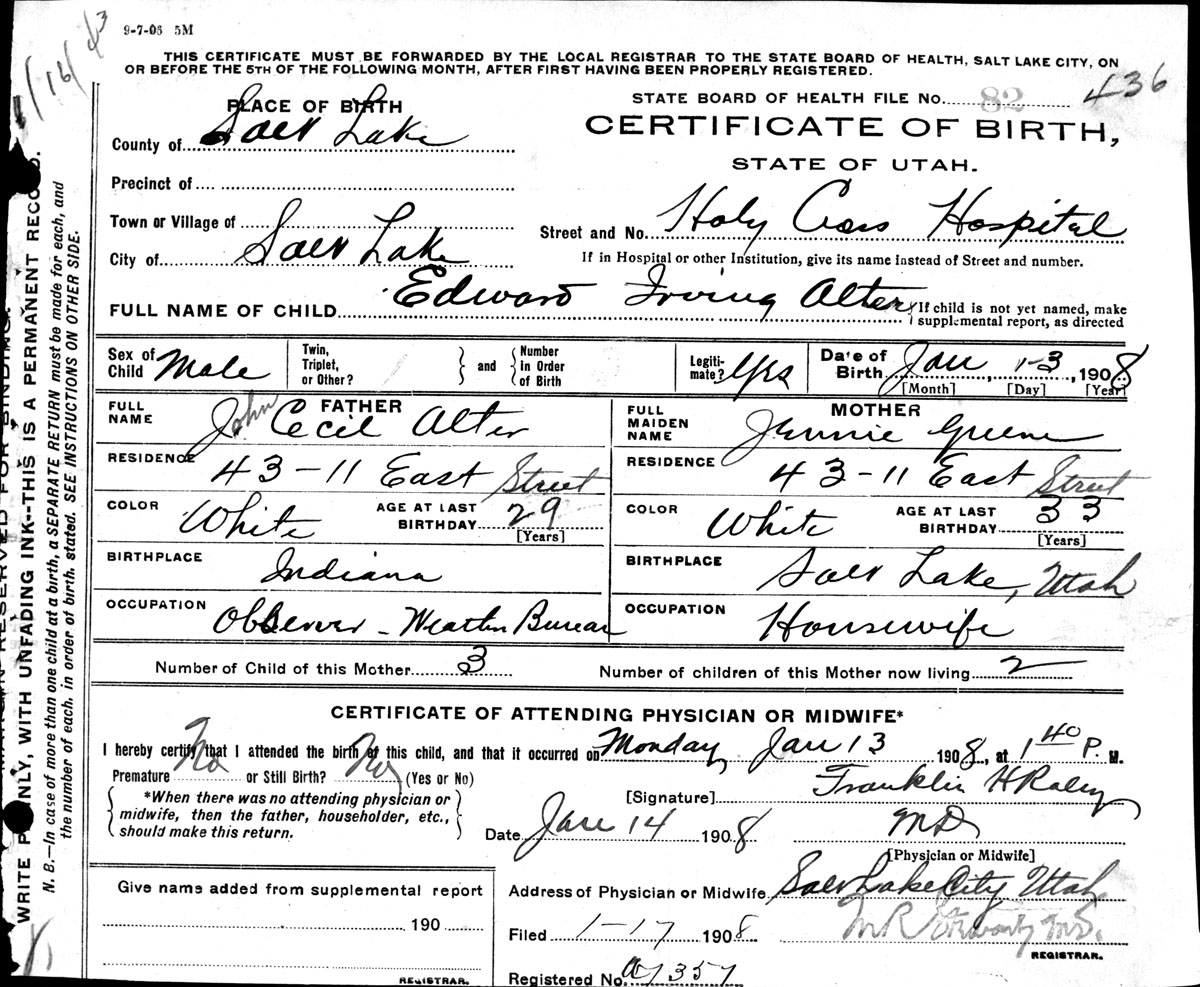 9-7-06 5M
THIS CERTIFICATE MUST BE FORWARDED BY THE LOCAL REGISTRAR TO THE STATE BOARD OF HEALTH, SALT LAKE CITY, ON
OR BEFORE THE 5TH OF THE FOLLOWING MONTH, AFTER FIRST HAVING BEEN PROPERLY REGISTERED.
PLACE OF BIRTH
STATE BOARD OF HEALTH FILE No. 82 436
CERTIFICATE OF BIRTH,
STATE OF UTAH.
County of Salt Lake
Precinct of
Town or Village of
Street and No. Holy Cross Hospital
City of Salt Lake
If in Hospital or other Institution, give its name instead of Street and number.
FULL NAME OF CHILD Edward Irving Alter
{If child is not yet named, make
supplemental report, as directed
Sex of Child Male
Twin, Triplet, or Other?
and
Number In Order of Birth
Legiti-mate? Yes
Date of Birth Jan, 13, 1908
[Month] [Day] [Year]
FATHER
FULL NAME John Cecil Alter
MOTHER
FULL MAIDEN NAME Jennie Greene
RESIDENCE 43-11 East Street
RESIDENCE 43-11 East Street
COLOR White AGE AT LAST BIRTHDAY 29 [Years]
COLOR White AGE AT LAST BIRTHDAY 33 [Years]
BIRTHPLACE Indiana
BIRTHPLACE Salt Lake, Utah
OCCUPATION Observer - Weather Bureau
OCCUPATION Housewife
Number of Child of this Mother 3
Number of children of this Mother now living 2
CERTIFICATE OF ATTENDING PHYSICIAN OR MIDWIFE*
I hereby certify that I attended the birth of this child, and that it occurred on Monday Jan 13 1908, at 1 40 P. M.
Premature No or Still Birth? No (Yes or No)
*When there was no attending physician or
midwife, then the father, householder, etc.,
should make this return.
[Signature] Franklin H Raley
Date Jan 14 1908
MD
[Physician or Midwife]
Give name added from supplemental report
190
REGISTRAR.
Address of Physician or Midwife Salt Lake City Utah
Filed 1-17 1908
M.D.
REGISTRAR.
Registered No. 357
WRITE ONLY, WITH UNFADING INK--THIS IS A PERMANENT RECORD.
N. B.—In case of more than one child at a birth, a SEPARATE RETURN must be made for each, and
the number of each, in order of birth, stated. SEE INSTRUCTIONS ON OTHER SIDE.